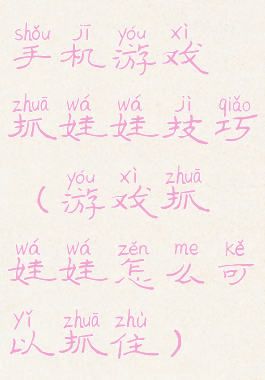 shǒu jī yóu xì
手机游戏
zhuā wá wá jì qiǎo
抓娃娃技巧
yóu xì zhuā
(游戏抓
wá wá zěn me kě
娃娃怎么可
yǐ zhuā zhù
以抓住)